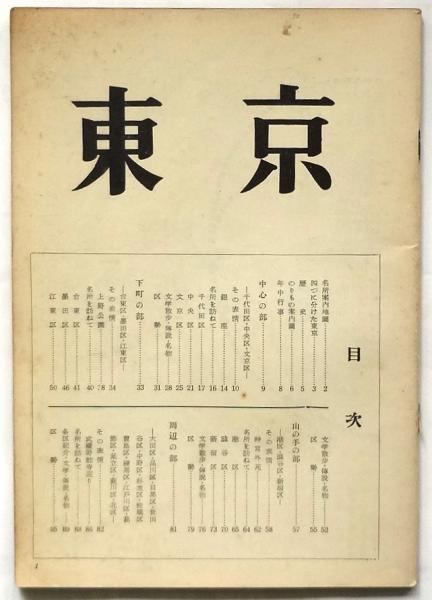 東京
目次
名所案内地圖……2
四つに分けた東京……3
歴史……5
のりもの案内圖……6
年中行事……8
中心の部……9
―千代田区・中央区・文京区―
その表情……10
銀座……14
名所を訪ねて……16
千代田区……17
中央区……21
文京区……25
文学散歩・傳説・名物……28
区勢……31
下町の部……33
―台東区・墨田区・江東区―
その表情……34
上野公園……78
名所を訪ねて……40
台東区……41
墨田区……46
江東区……50
文学散歩・傳説・名物……52
区勢……55
山の手の部……57
―港区・澁谷区・新宿区―
その表情……58
神宮外苑……62
名所を訪ねて……64
港区……65
澁谷区……70
新宿区……73
文学散歩・傳説・名物……76
区勢……79
周辺の部……81
―大田区・品川区・目黒区・世田
谷区・中野区・杉並区・板橋区
豊島区・練馬区・江戸川区・葛
飾区・足立区・荒川区・北区―
その表情……82
武蔵野探春巡り……86
名所を訪ねて……88
各区紹介・文学・傳説・名物……89
区勢……95
1